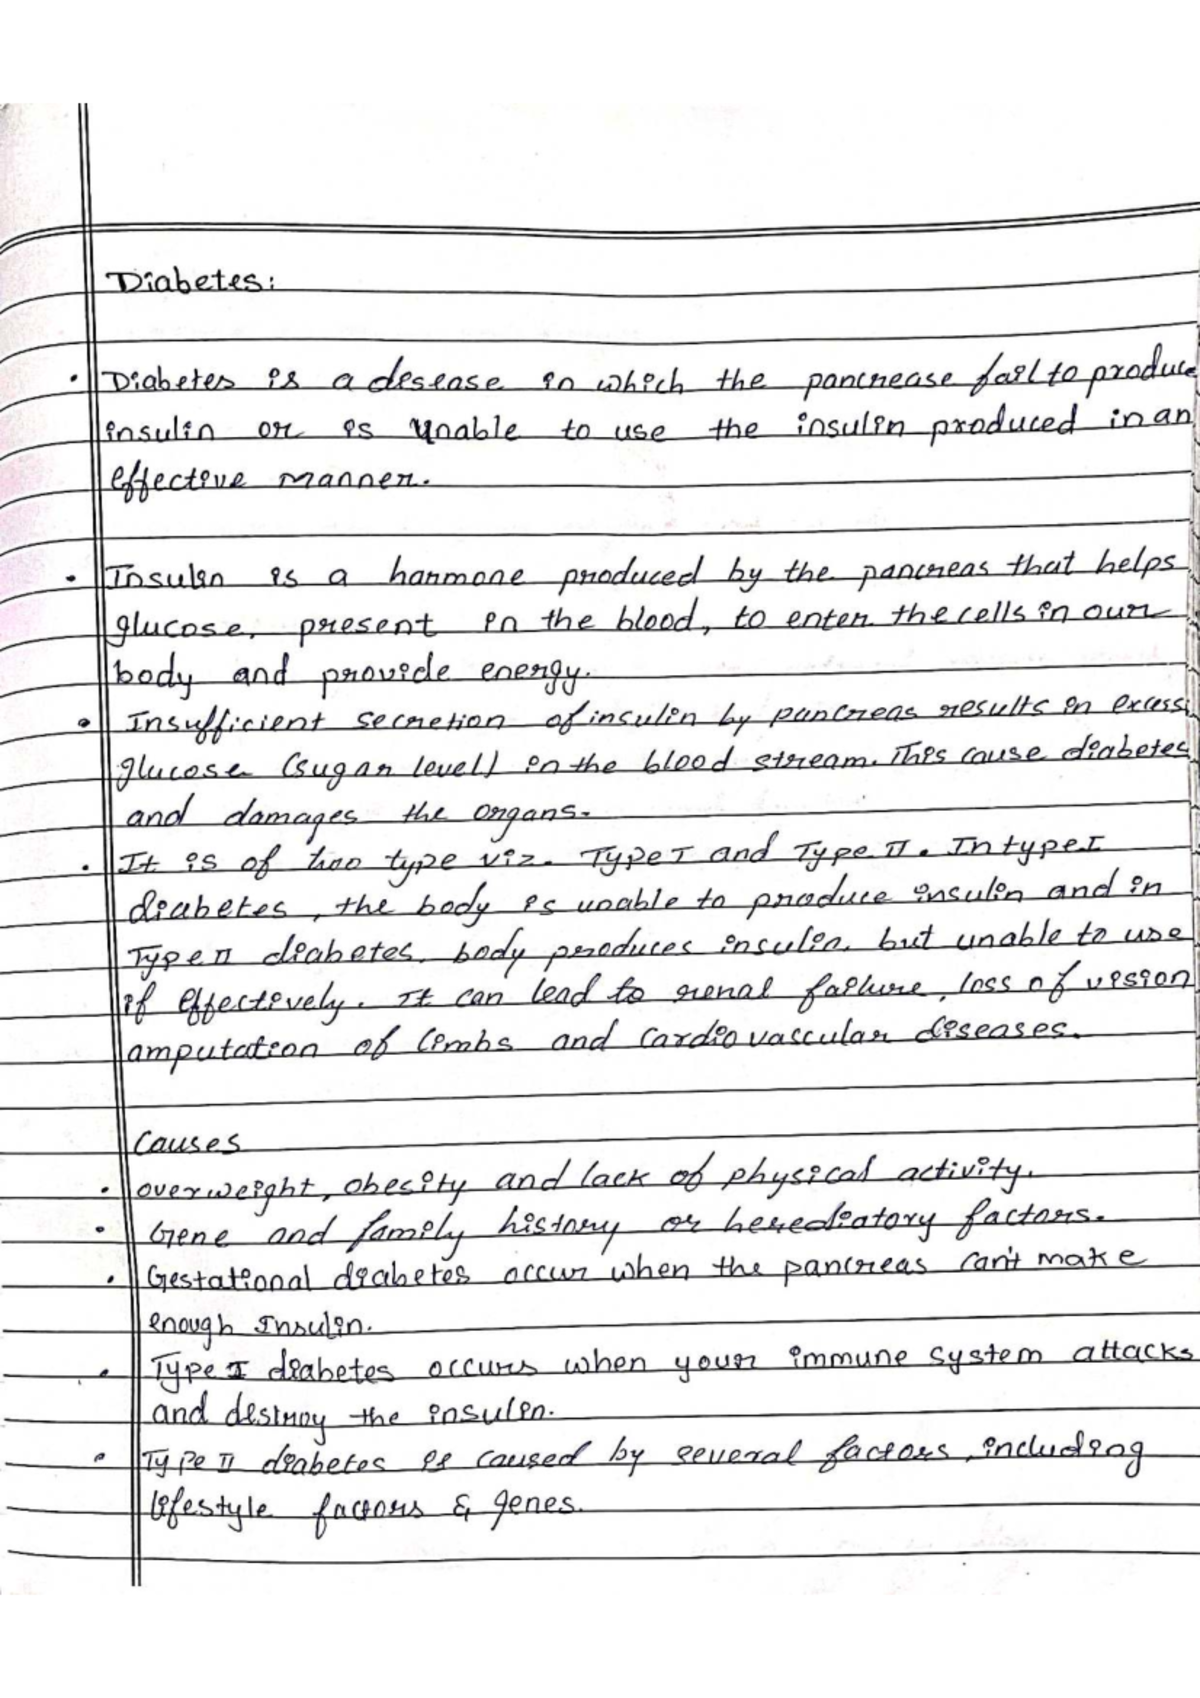 Diabetes:
• Diabetes is a desease in which the pancrease fail to produce
insulin or is unable to use the insulin produced in an
effective manner.
• Insulin is a harmone produced by the pancreas that helps
glucose, present in the blood, to enter the cells in our
body and provide energy.
• Insufficient secretion of insulin by pancreas results in excess
glucose (sugar level) in the blood stream. This cause diabetes
and damages the organs.
• It is of two type viz. Type I and Type II. In type I
diabetes, the body is unable to produce insulin and in
Type II diabetes, body produces insulin, but unable to use
if effectively. It can lead to renal failure, loss of vision
amputation of limbs and cardiovascular diseases.
Causes
• overweight, obesity and lack of physical activity.
• Gene and family history or herediatory factors.
• Gestational diabetes occur when the pancreas can't make
enough Insulin.
• Type I diabetes occurs when your immune system attacks
and destroy the insulin.
• Type II diabetes is caused by several factors, including
lifestyle factors & genes.